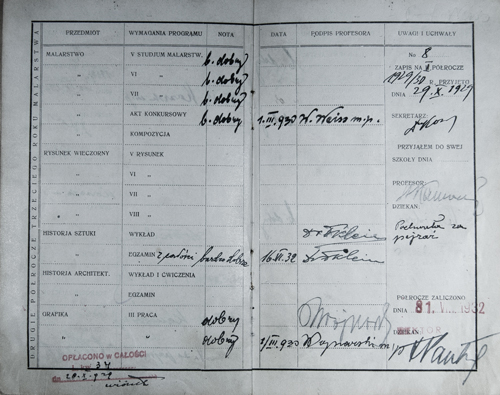 DRUGIE PÓŁROCZE TRZECIEGO ROKU MALARSTWA
PRZEDMIOT WYMAGANIA PROGRAMU NOTA DATA PODPIS PROFESORA UWAGI I UCHWAŁY
MALARSTWO V STUDJUM MALARSTW. b. dobry
" VI " b. dobry
" VII " b. dobry
" AKT KONKURSOWY b. dobry 1.III.930 W. Weiss m.p.
" KOMPOZYCJA
RYSUNEK WIECZORNY V RYSUNEK
" VI "
" VII "
" VIII "
HISTORJA SZTUKI WYKŁAD
" EGZAMIN z całości bardzo dobrze 16.VI.32
HISTORJA ARCHITEKT. WYKŁAD I ĆWICZENIA
" EGZAMIN
GRAFIKA III PRACA dobry
" " dobry 1/III 930 Wojnarski m/p
No 8
ZAPIS NA I PÓŁROCZE
1929/30 R. PRZYJĘTO
DNIA 29.X.1929
SEKRETARZ:
PRZYJĄŁEM DO SWEJ
SZKOŁY DNIA
PROFESOR:
DZIEKAN:
PÓŁROCZE ZALICZONO
DNIA 31. VIII. 1932
OPŁACONO w CAŁOŚCI
L. kw. 34